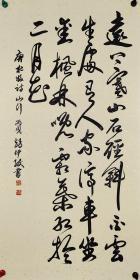 遠上寒山石徑斜白雲
生處有人家停車坐
愛楓林晚霜葉紅於
二月花
唐杜牧詩山行 書